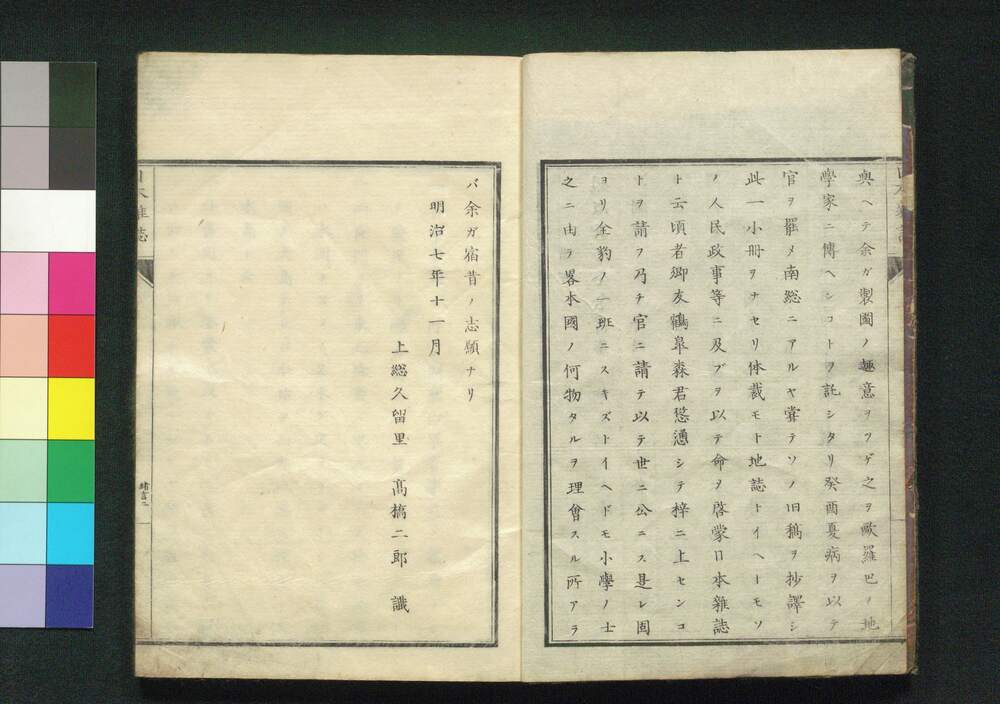 與ヘテ余ガ製圖ノ趣意ヲツゲ之ヲ歐羅巴ノ地
學家ニ傳ヘンコトヲ託シタリ癸酉夏病ヲ以テ
官ヲ罷メ南総ニアルヤ甞テソノ旧稿ヲ抄譯シ
此一小冊ヲナセリ体裁モト地誌トイヘ𪜈モソ
ノ人民政事等ニ及ブヲ以テ命ヲ啓蒙日本雜誌
ト云頃者郷友鶴皐森君慫慂シテ梓ニ上センコ
トヲ請フ乃チ官ニ請テ以テ世ニ公ニス是レ固
ヨリ全豹ノ一班ニスキズトイヘドモ小學ノ士
之ニ由ラ畧本國ノ何物タルヲ理會スル所アラ
バ余ガ宿昔ノ志願ナリ
明治七年十一月
上総久留里 髙橋二郎 識
日本雜誌
緒言二